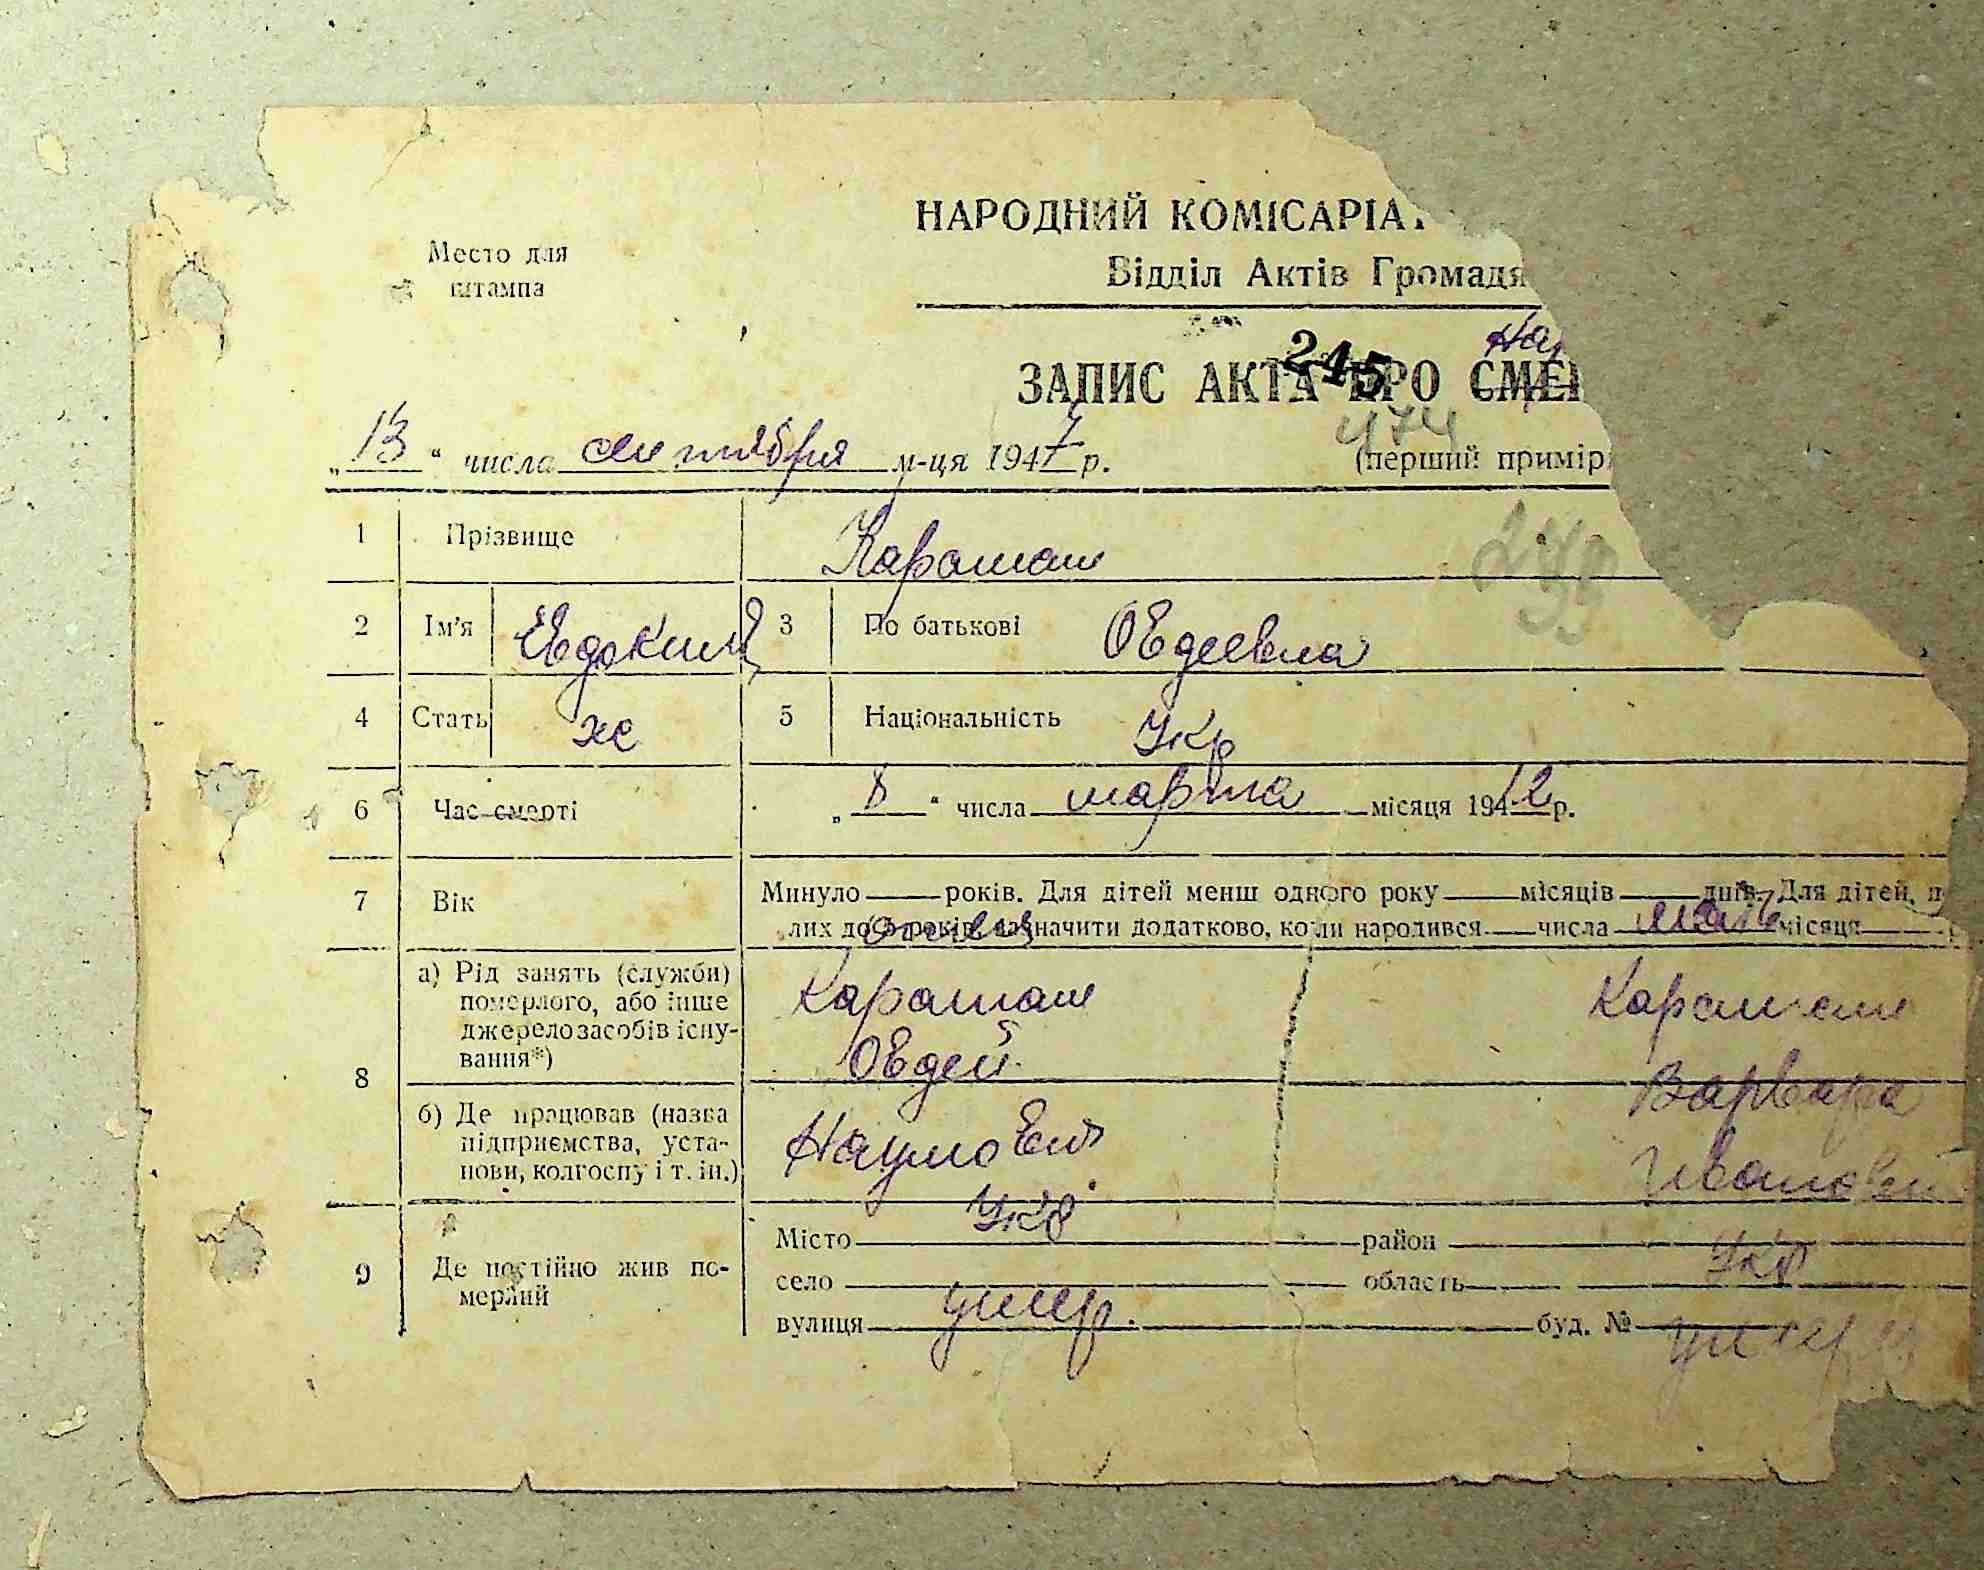 Место для
штампа
НАРОДНИЙ КОМІСАРІАТ
Відділ Актів Громадя
245
На
ЗАПИС АКТА ПРО СМЕР
474
„13“ числа сентября м-ця 1947 р.
(перший примір
1 Прізвище Карамаш
2 Ім'я Евдокия 3 По батькові Овдеевна
4 Стать же 5 Національність Укр
6 Час смерті „8“ числа марта місяця 1912 р.
7 Вік Минуло років. Для дітей менш одного року місяців днів. Для дітей, п
лих до 5 років, зазначити додатково, коли народився числа мать місяця
отец
8 а) Рід занять (служби)
померлого, або інше
джерело засобів існу-
вання*)
Карамаш
Овдей
Карамаш
Варвара
б) Де працював (назва
підприємства, уста-
нови, колгоспу і т. ін.)
Наумович
Укр
Ивановн
Укр
9 Де постійно жив по-
мерлий
Місто район
село область
вулиця буд. №
умер.